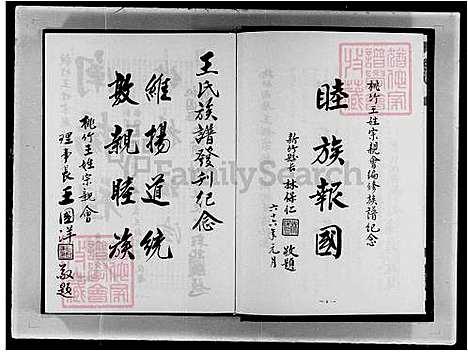 桃竹王姓宗親會編修族譜紀念
睦族報國
新竹縣長 林保仁 敬題
六十六年元月
王氏族譜發刊紀念
維揚道統
敦親睦族
桃竹王姓宗親會
理事長王國洋 敬題
FamilySearch